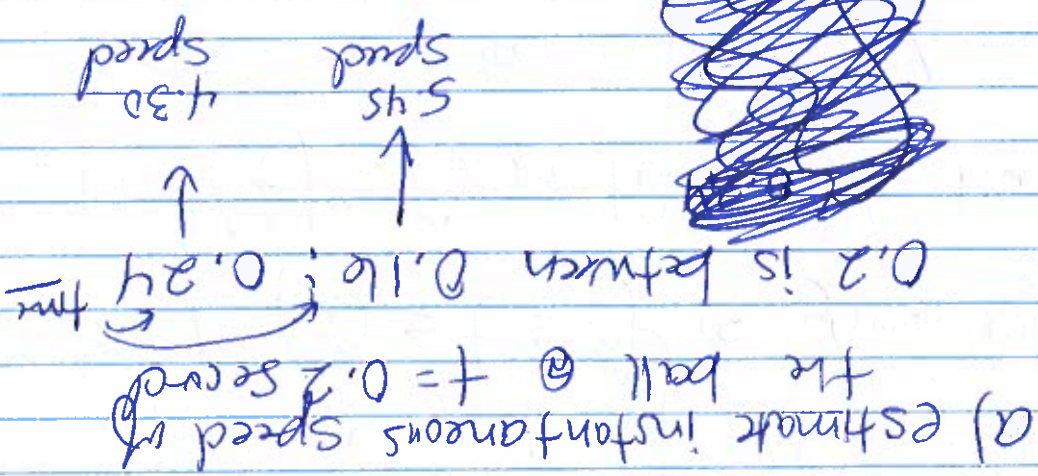 a) estimate instantaneous speed of
the ball @ t = 0.2 second
0.2 is between 0.16 ; 0.24 time
5.45 4.30
speed speed